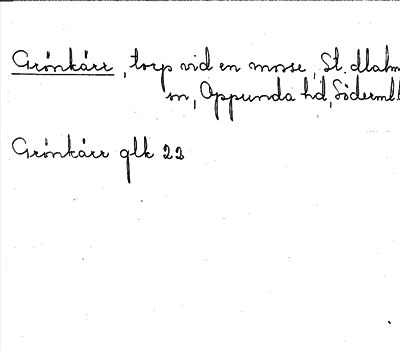 Grönkärr, torp vid en mosse, St. Malm
sn, Oppunda hd, Söderml
Grönkärr glk 22